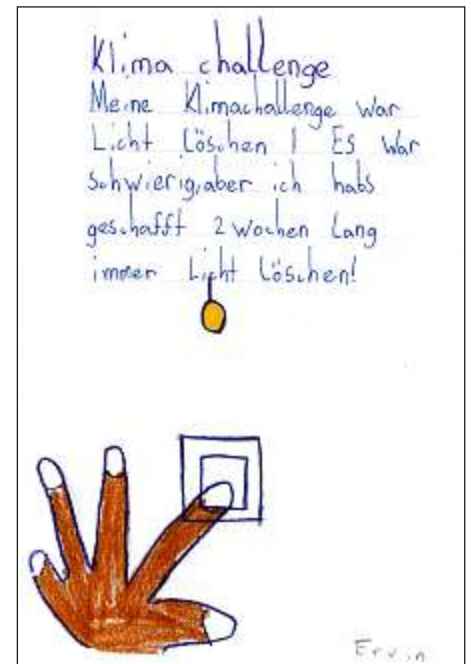 Klima challenge
Meine Klimachallenge war
Licht Löschen ! Es war
schwierig,aber ich habs
geschafft 2 wochen Lang
immer Licht Löschen!
Ervin